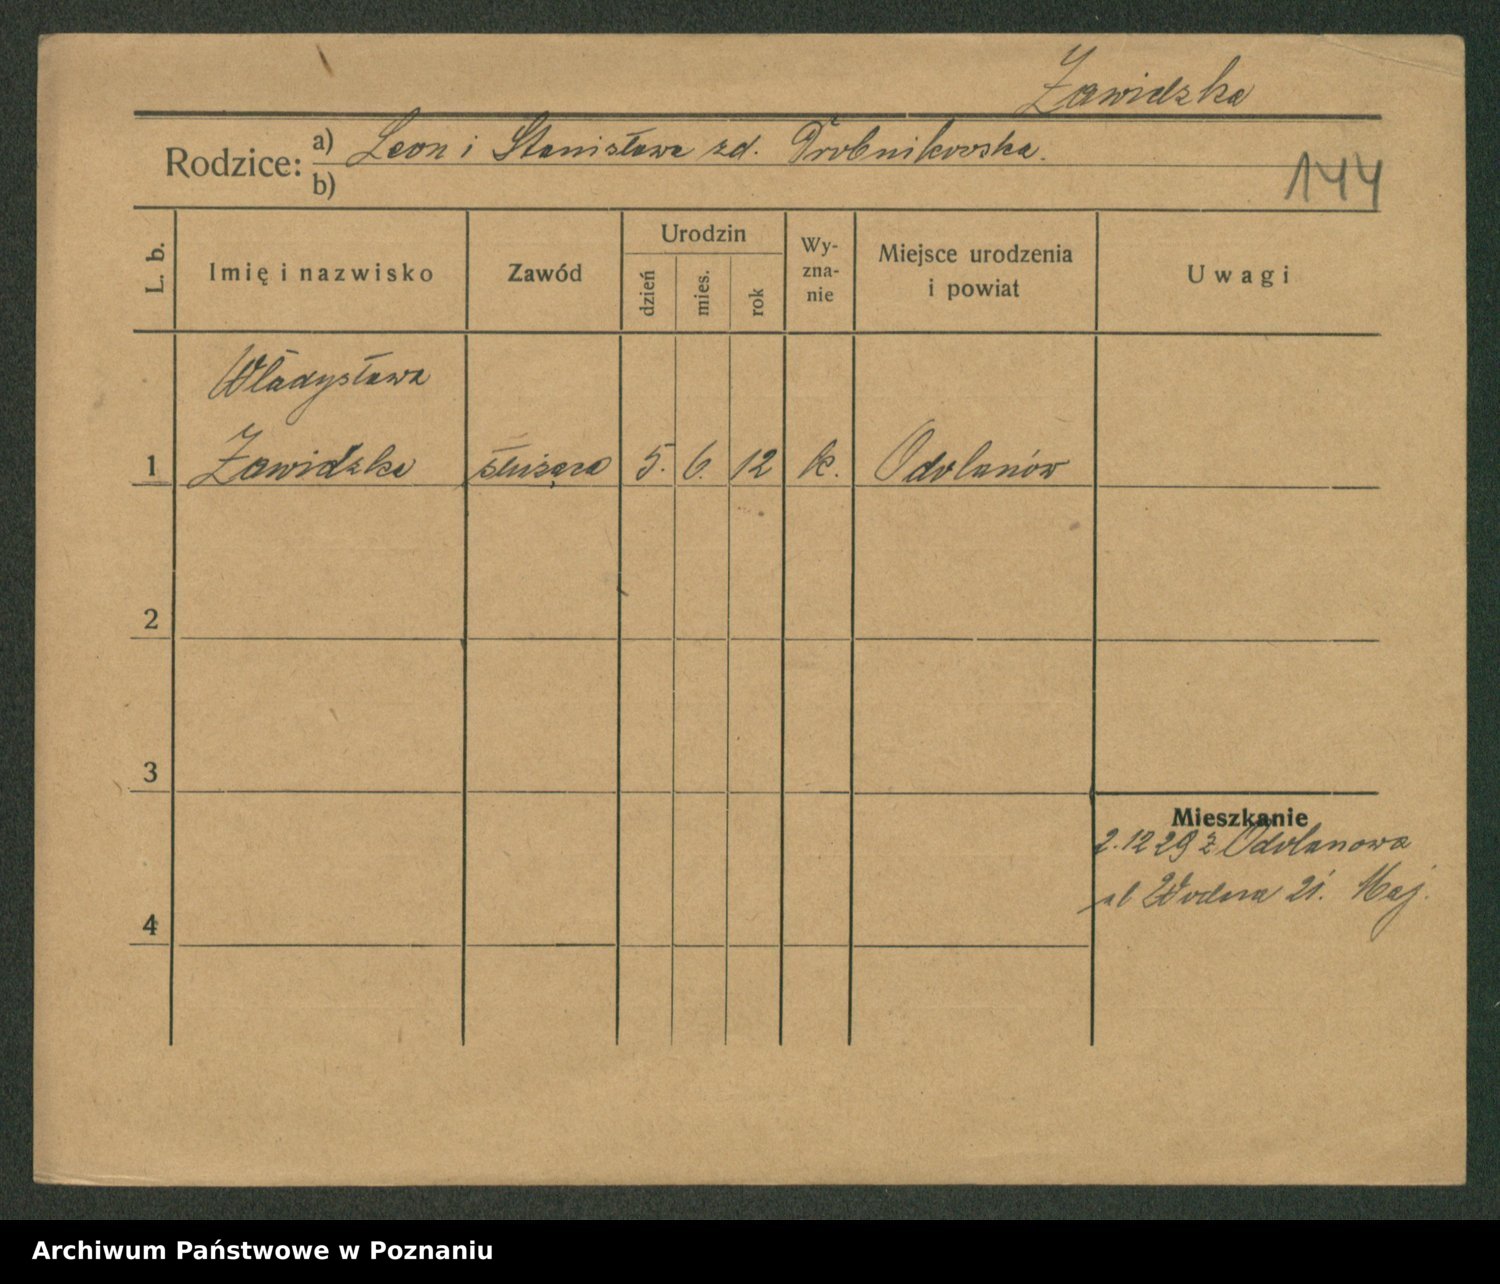 Zawidzka
Rodzice: a) Leon i Stanisława zd. Drobnikowska.
b)
144
L. b.
Imię i nazwisko
Zawód
Urodzin
dzień
mies.
rok
Wy-
zna-
nie
Miejsce urodzenia
i powiat
Uwagi
Władysława
1 Zawidzka służąca 5. 6. 12 k. Odolanów
2
3
Mieszkanie
2.12 29 z Odolanowa
ul Wodna 21. Maj.
4
Archiwum Państwowe w Poznaniu